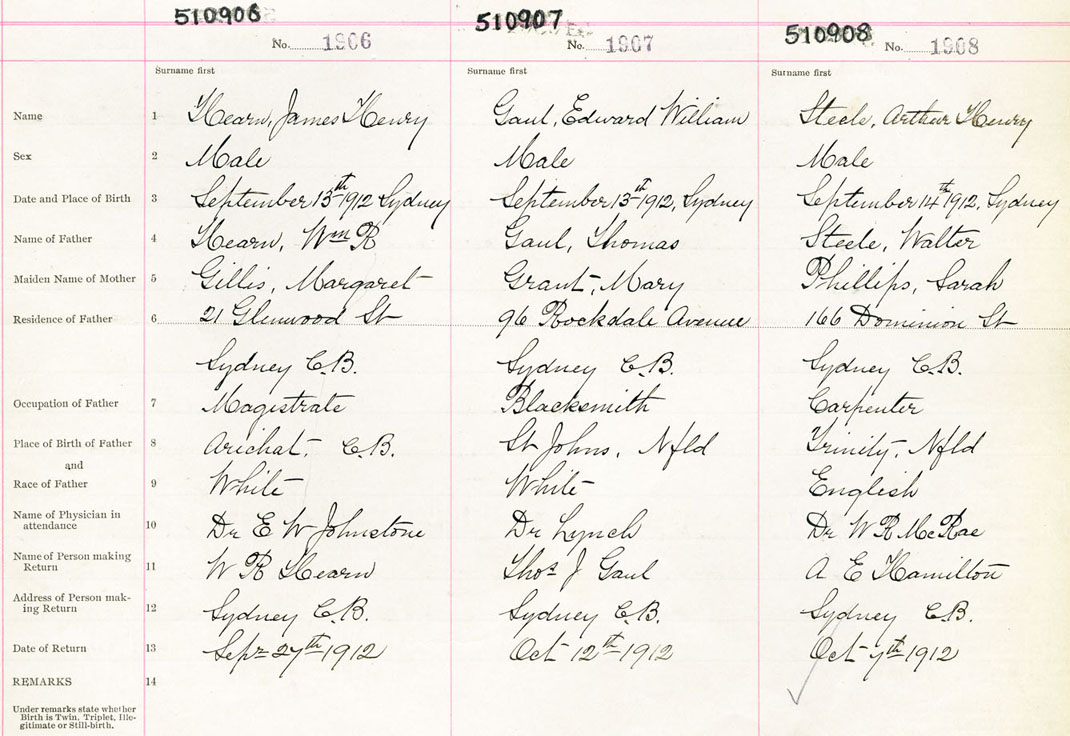 510906 510907 510908
No. 1906 No. 1907 No. 1908
Surname first Surname first Surname first
Name 1 Hearn, James Henry Gaul, Edward William Steele, Arthur Henry
Sex 2 Male Male Male
Date and Place of Birth 3 September 13th 1912 Sydney September 13th 1912, Sydney September 14th 1912, Sydney
Name of Father 4 Hearn, Wm R Gaul, Thomas Steele, Walter
Maiden Name of Mother 5 Gillis, Margaret Grant, Mary Phillips, Sarah
Residence of Father 6 21 Glenwood St 96 Rockdale Avenue 166 Dominion St
Sydney C.B. Sydney C.B. Sydney C.B.
Occupation of Father 7 Magistrate Blacksmith Carpenter
Place of Birth of Father 8 Arichat, C.B. St Johns, Nfld Trinity, Nfld
and
Race of Father 9 White White English
Name of Physician in
attendance 10 Dr E W Johnstone Dr Lynch Dr W R McRae
Name of Person making
Return 11 W R Hearn Thos J Gaul A E Hamilton
Address of Person mak-
ing Return 12 Sydney C.B. Sydney C.B. Sydney C.B.
Date of Return 13 Sept 27th 1912 Oct 12th 1912 Oct 7th 1912
REMARKS 14
Under remarks state whether
Birth is Twin, Triplet, Ille-
gitimate or Still-birth.